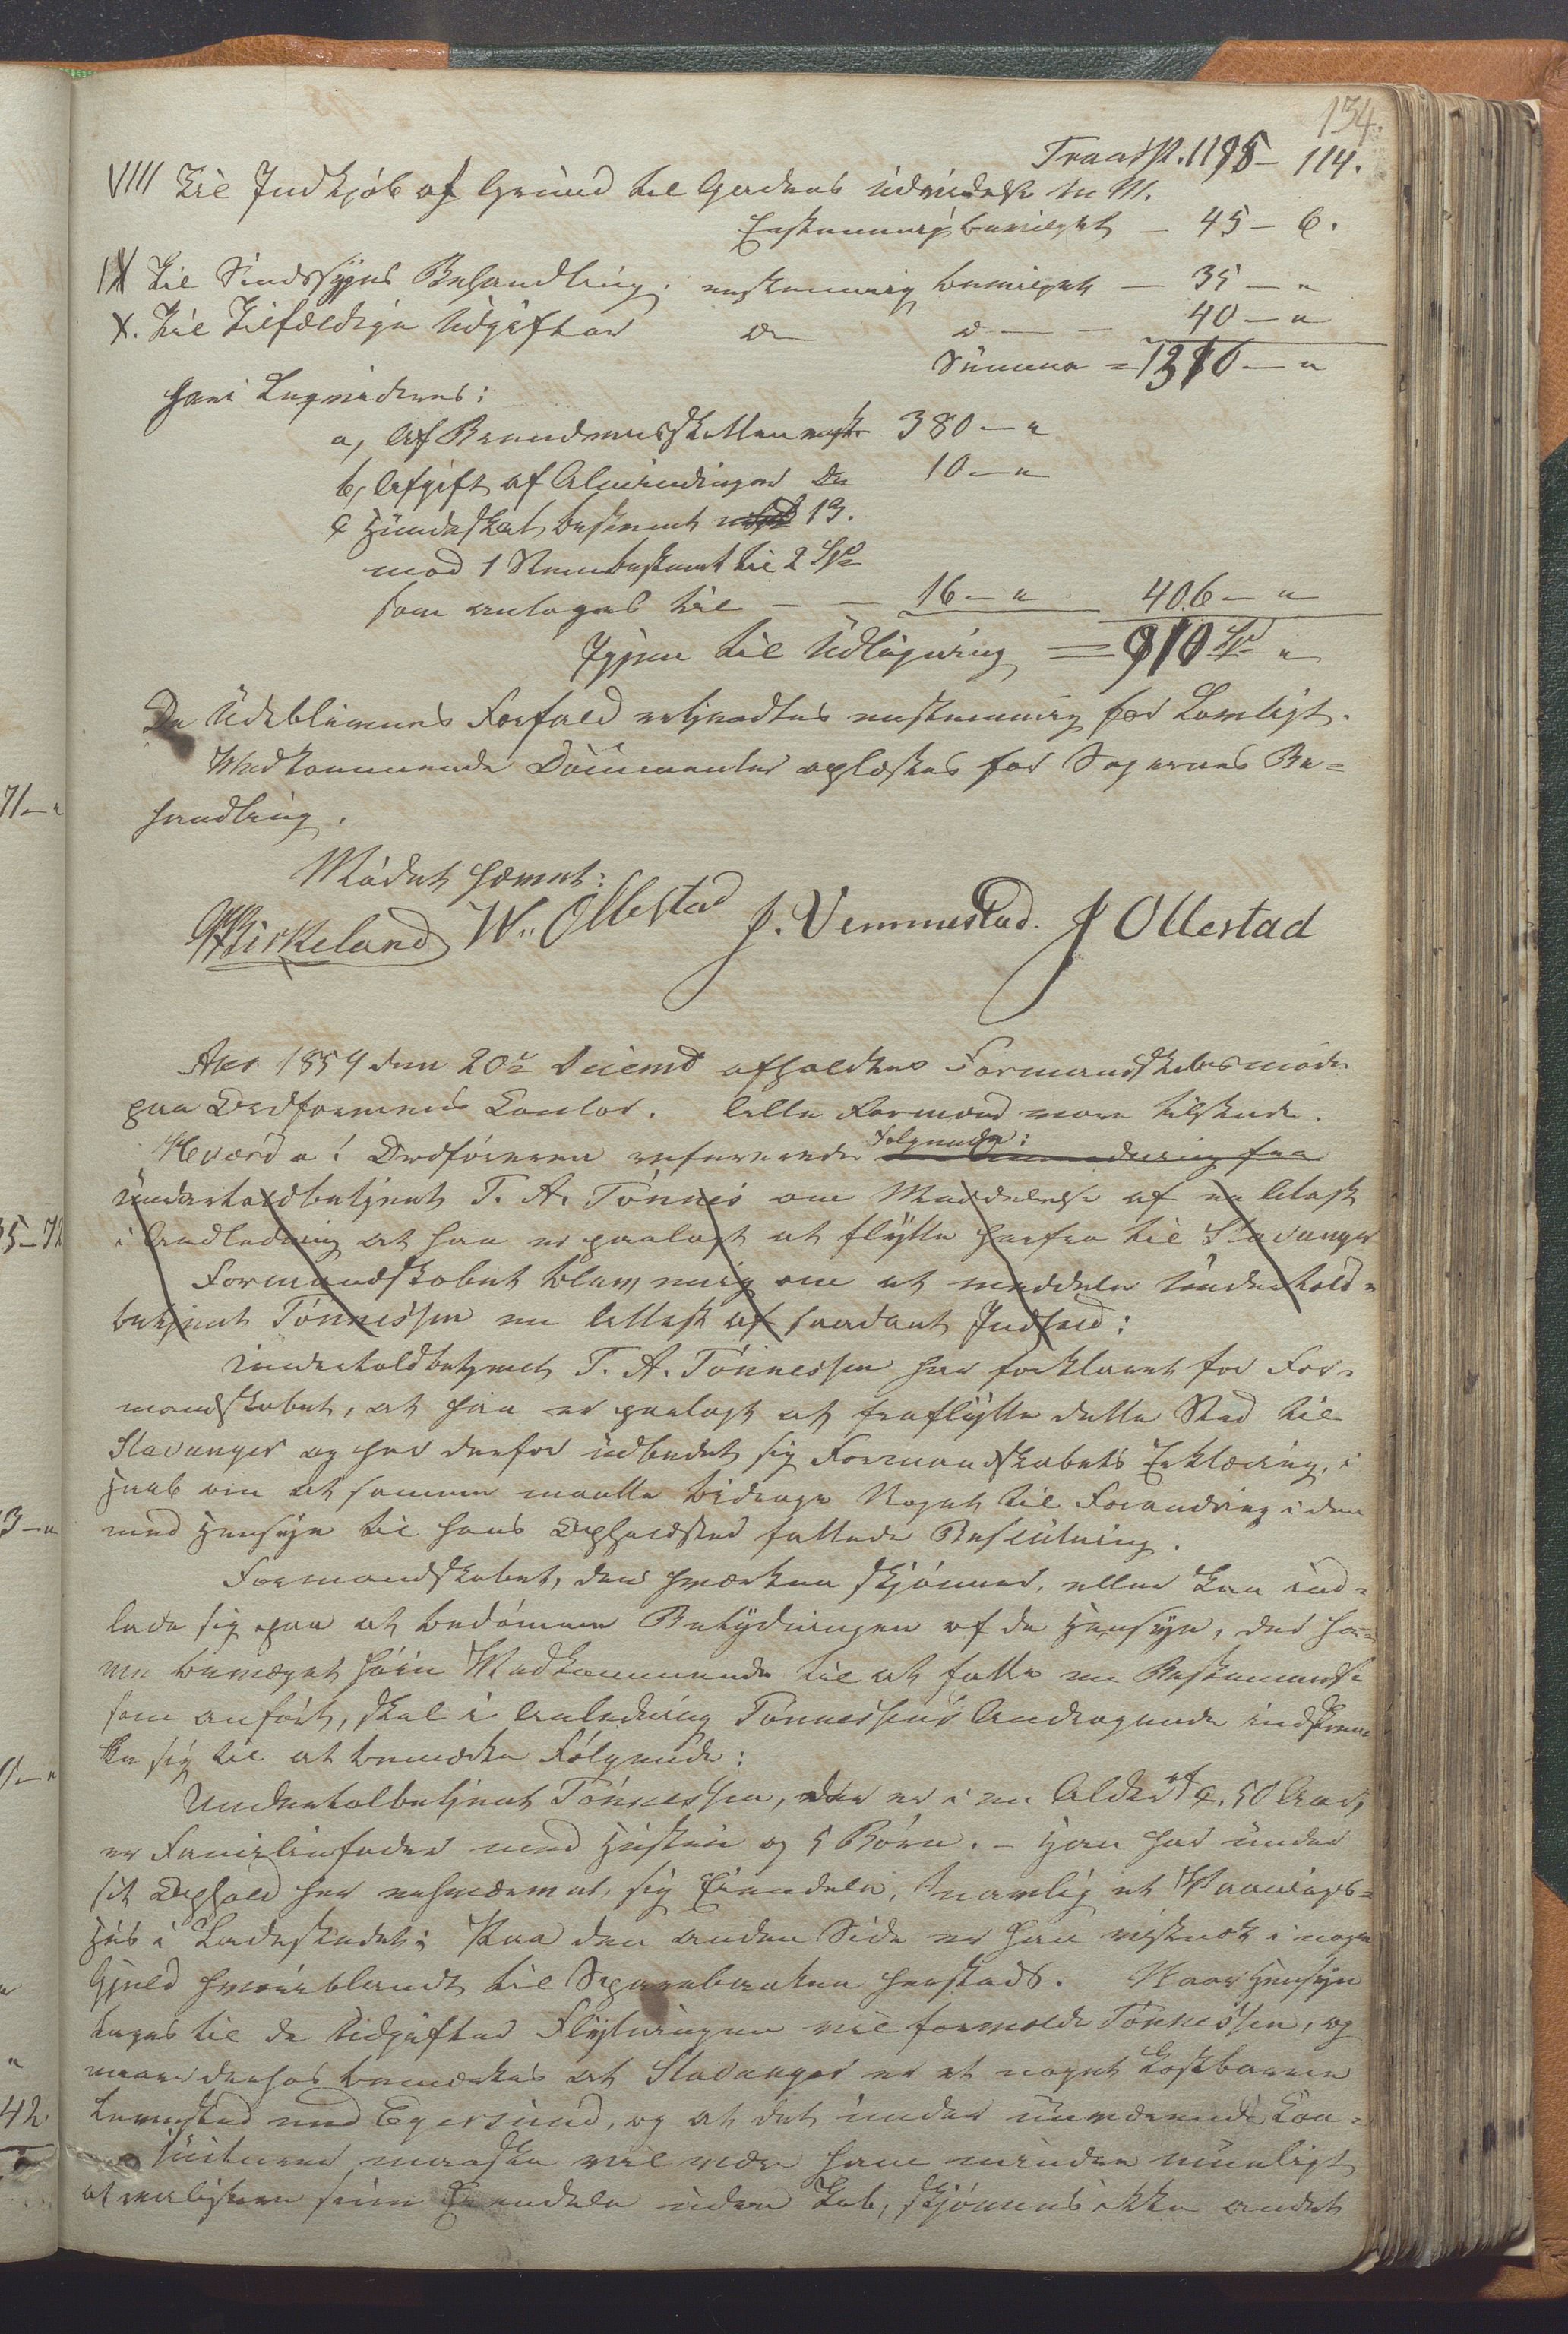 134.
Transp. 1195 - 114.
VIII Til Indkjøb af Grund til Gadens Udvidelse m. M.
Eenstemmig bevilget - 45 - 6.
IX Til Sindssyges Behandling, enstemmig bevilget - 35 - "
X. Til Tilfældige Udgifter do do - - 40 - "
Summa = 1316 - "
heri Liqvideres:
a, Af Brændeviinsskatten enst. 380 - "
b, Afgift af Almindingen do 10 - "
c Hundeskat bestemt 13.
mod 1 Stem bestemt til 2 Spd
som antages til - - 16 - " 406 - "
Igjen til Udligning = 910 Spd "
De Udeblivenes Forfald erkjendtes enstemmig for Lovligt.
Vedkommende Documenter oplæstes før Sagernes Be=
handling.
Mødet hævet:
Birkeland W. Ollestad J. Vemmestad. J Ollestad
Aar 1859 den 20de Decembr afholdtes Formandskabsmøde
paa Ordførerens Contor. Alle Formænd vare tilstede.
Hvorda: Ordføreren refererede følgende:
Undertoldbetjent T. A. Tønnes om Meddelelse af en Attest
i Andledning at han er paalagt at flytte herfra til Stavanger
Formandskabet blev enig om at meddele Undertold=
betjent Tønnessen en Attest af saadant Indhold:
Undertoldbetjent T. A. Tønnessen har forklaret for For=
mandskabet, at han er paalagt at fraflytte dette Sted til
Stavanger og har derfor udbedet sig Formandskabets Erklæring, i
Haab om at samme maatte bidrage Noget til Forandring i den
med Hensyn til hans Opholdsted fattede Beslutning.
Formandskabet, der hverken skjønner, eller kan ind=
lade sig paa at bedømme Betydningen af de Hensyn, der ha=
ve bevæget høie Vedkommende til at fatte en Bestemmelse
som anført, skal i Anledning Tønnessens Andragende indskræn
ke sig til at bemærke Følgende:
Undertolbetjent Tønnessen, der er i en Alder af c. 50 Aar,
er Familiefader med Hustru og 5 Børn. - Han har under
sit Ophold her erhvervet sig Eiendele, navnlig et Vaanings=
huus i Ladestedet; Paa den anden Side er han vistnok i nogen
Gjeld hvoriblandt til Sparebanken herstads. Naar Hensyn
tages til de Udgifter Flytningen vil formode Tønnessen, og
maa derhos bemærkes at Stavanger er et noget kostbarere
Levested end Egersund, og at det under nuværende Con=
juncturer maaske vil være ham mindre mueligt
at realisere sine Eiendele uden Tab, skjønnes ikke andet